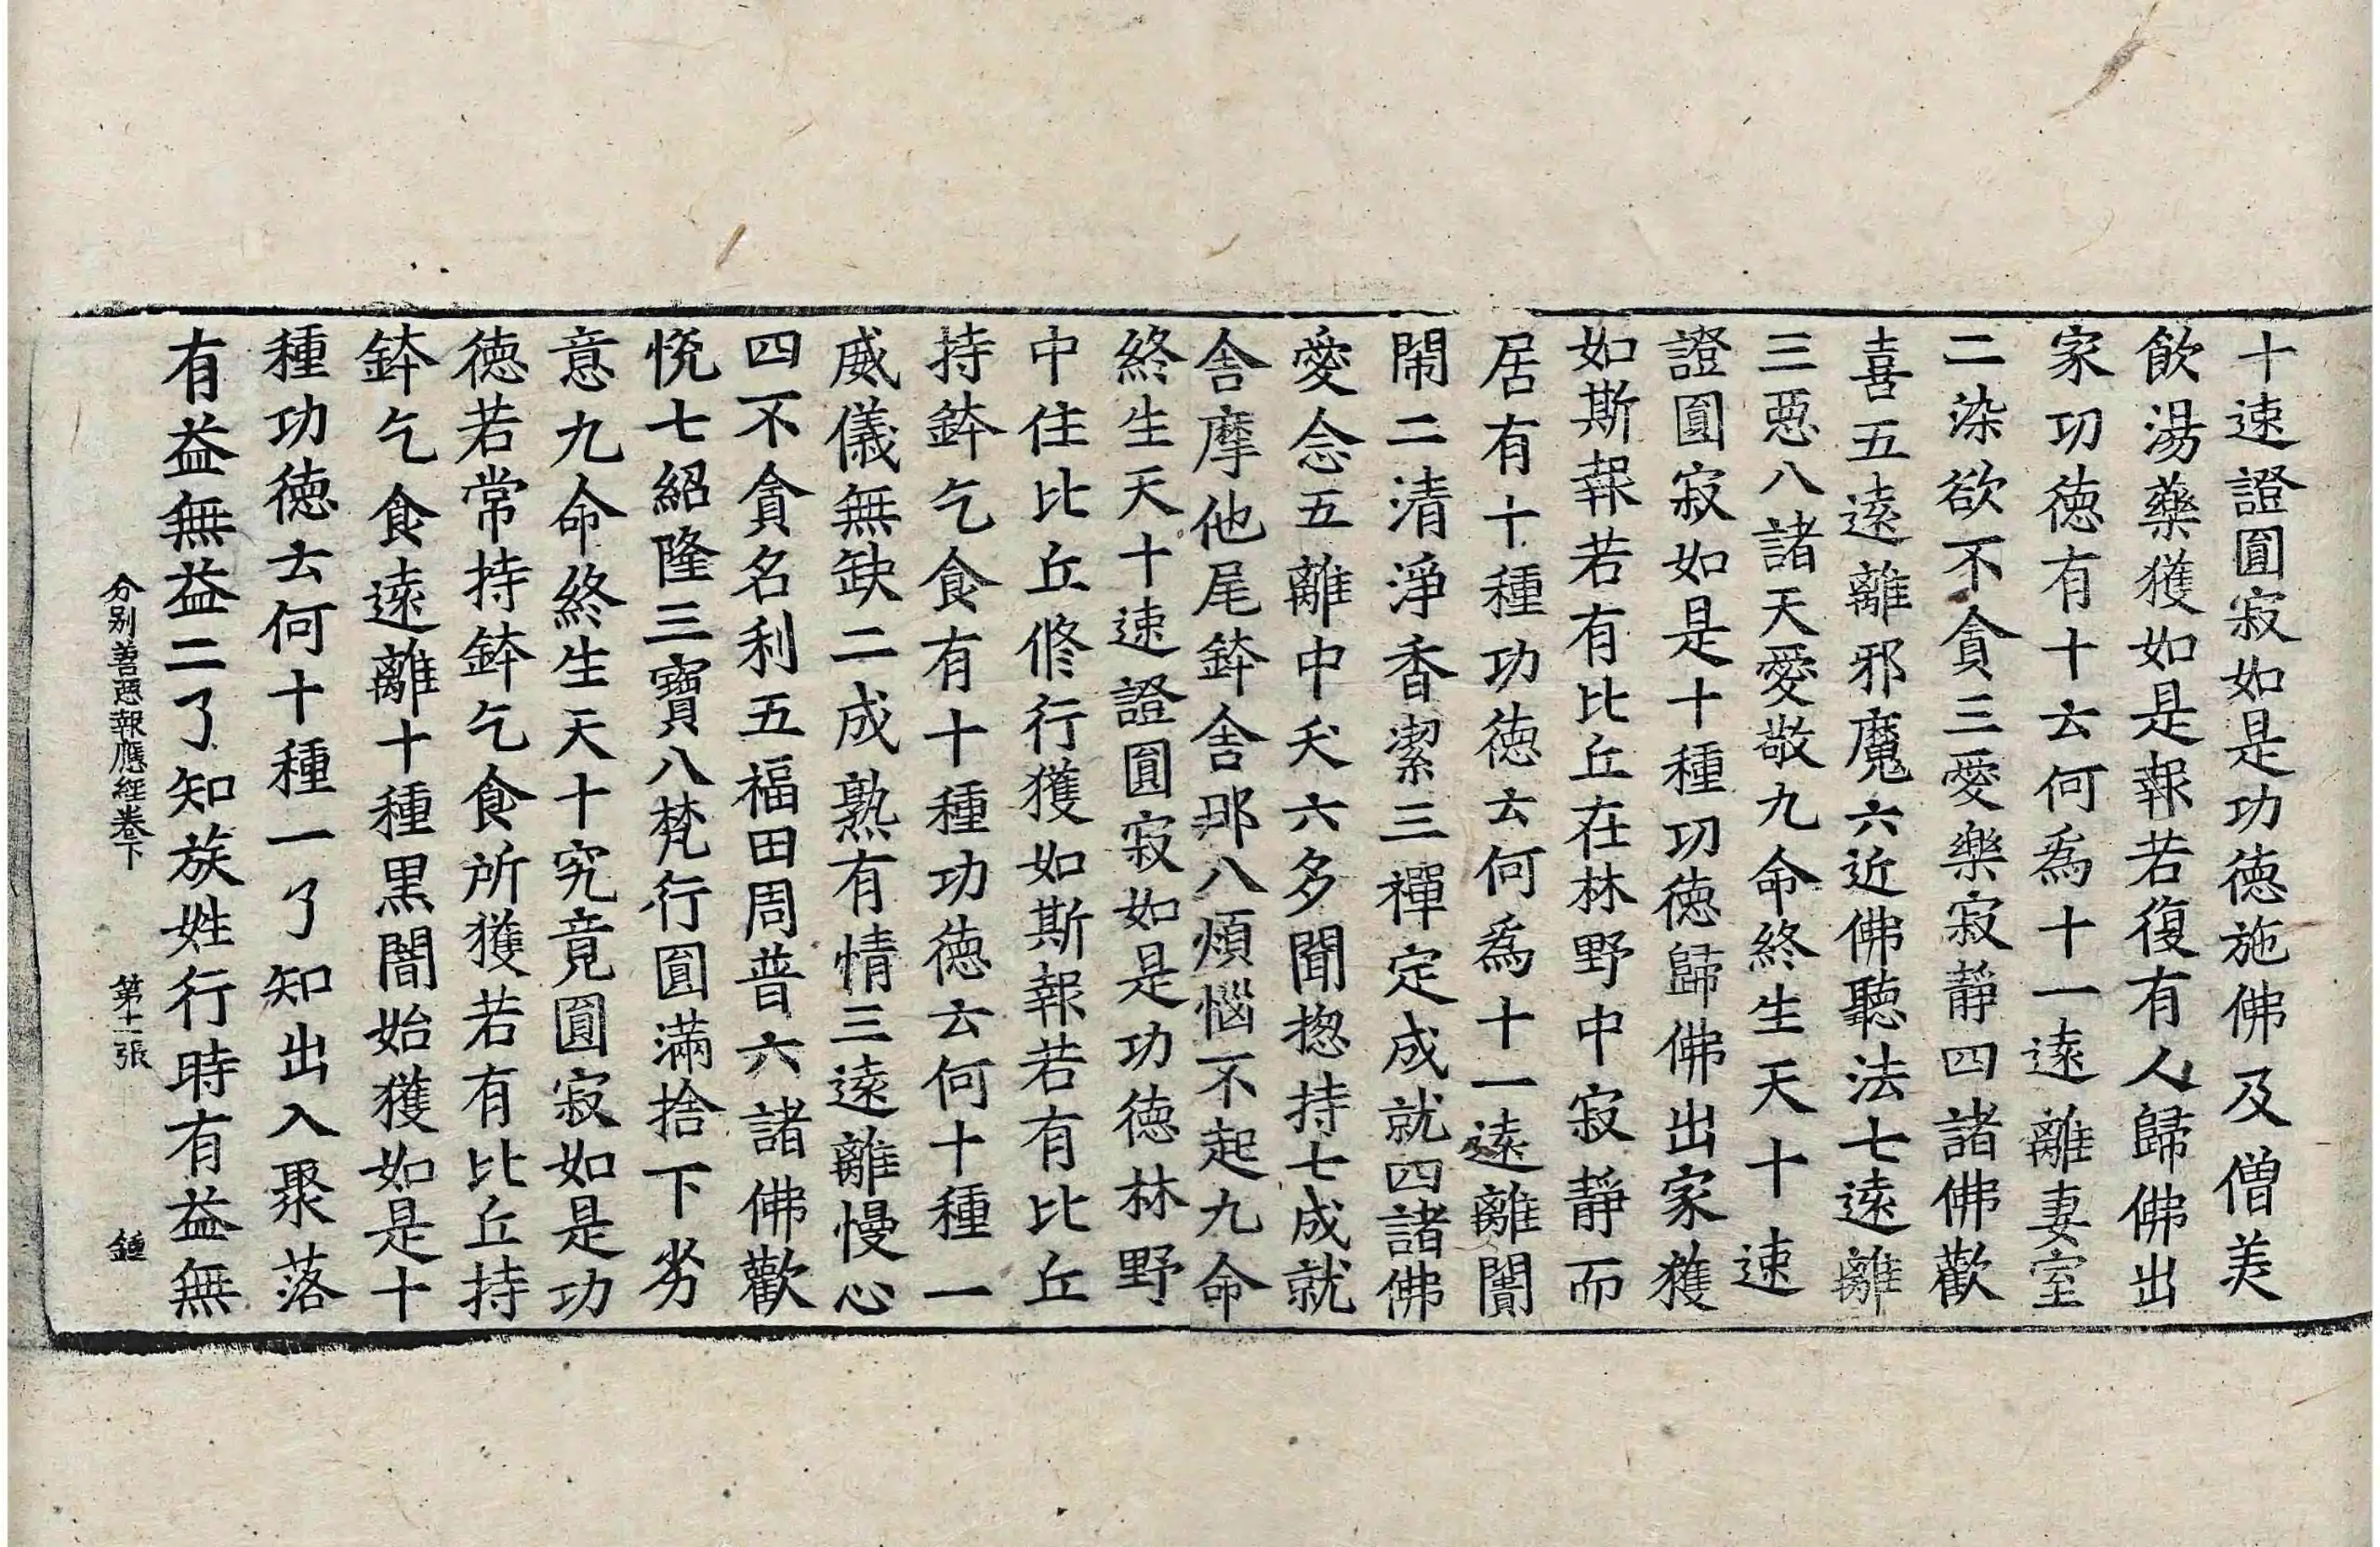 十速證圓寂如是功德施佛及僧美
飲湯藥獲如是報若復有人歸佛出
家功德有十云何爲十一遠離妻室
二染欲不貪三愛樂寂靜四諸佛歡
喜五遠離邪魔六近佛聽法七遠離
三惡八諸天愛敬九命終生天十速
證圓寂如是十種功德歸佛出家獲
如斯報若有比丘在林野中寂靜而
居有十種功德云何爲十一遠離闠
閙二清淨香潔三禪定成就四諸佛
愛念五離中夭六多聞揔持七成就
舎摩他尾鉢舎那八煩惱不起九命
終生天十速證圓寂如是功德林野
中住比丘修行獲如斯報若有比丘
持鉢乞食有十種功德云何十種一
威儀無缺二成熟有情三遠離慢心
四不貪名利五福田周普六諸佛歡
悅七紹隆三寶八梵行圓滿捨下劣
意九命終生天十究竟圓寂如是功
德若常持鉢乞食所獲若有比丘持
鉢乞食遠離十種黑闇始獲如是十
種功德云何十種一了知出入聚落
有益無益二了知族姓行時有益無
分別善惡報應經卷下 第十一張 鍾